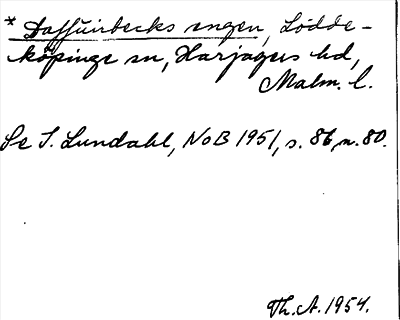 * Daffuirbecks engen, Lödde-
köpinge sn, Harjagers hd,
Malm. l.
Se I. Lundahl, NoB 1951, s. 86, n. 80.
Th. A. 1954.